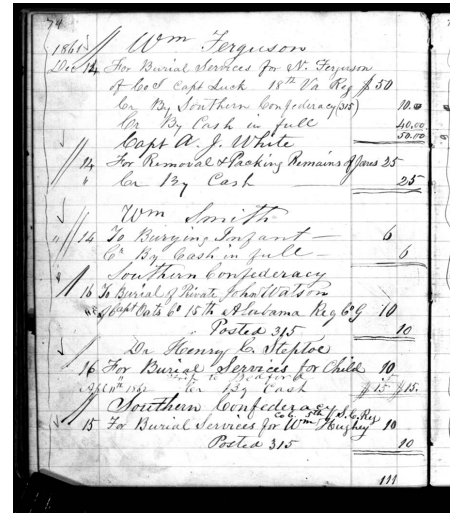 74
1861 Wm Ferguson
Dec 14 For Burial Services for N. Ferguson
of Co I Capt Luck 18th Va Reg $50
Cr By Southern Confederacy (315) 10.00
Cr By Cash in full 40.00
50.00
Capt A. J. White
14 For Removal & Packing Remains of 25
" Cr By Cash 25
Wm Smith
" 14 To Burying Infant 6
Cr By Cash in full 6
Southern Confederacy
16 To Burial of Private John Watson
of Capt Oats Co 15th Alabama Reg Co G 10
Posted 315 10
Dr Henry C. Steptoe
16 For Burial Services for Child 10
Apl 11th 1862 Cr By Cash $15 $15
Southern Confederacy
Col. 5th S.C. Reg
15 For Burial Services for Wm Hughey 10
Posted 315 10
111